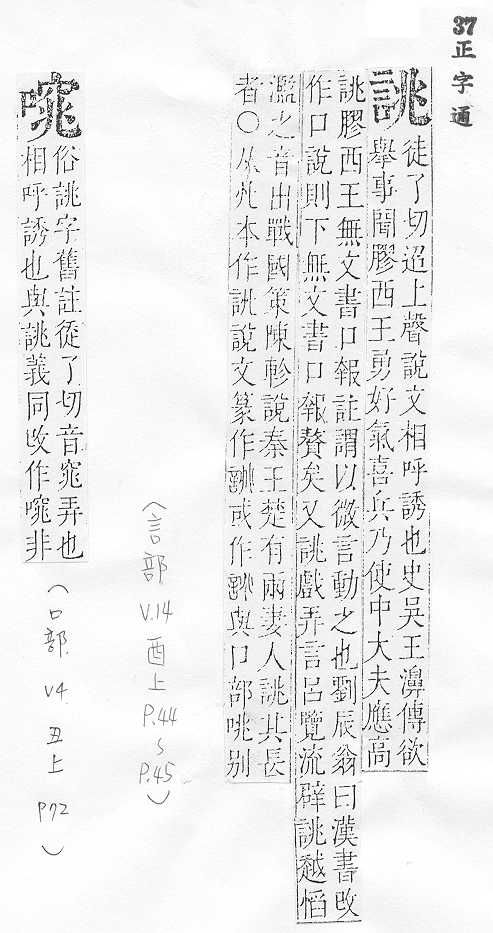 37 正字通
誂
徒了切迢上聲說文相呼誘也史吳王濞傳欲
舉事聞膠西王勇好氣喜兵乃使中大夫應高
誂膠西王無文書口報註謂以微言動之也劉辰翁曰漢書改
作口說則下無文書口報贅矣又誂戲弄言呂覽流辟誂越慆
濫之音出戰國策陳軫說秦王楚有兩妻人誂其長
者○从兆本作說文篆作或作與口部咷别
(言部 V.14 酉上 P.44 ~ P.45)
俗誂字舊註徒了切音窕弄也
相呼誘也與誂義同改作非
(口部 V4 丑上 P72)